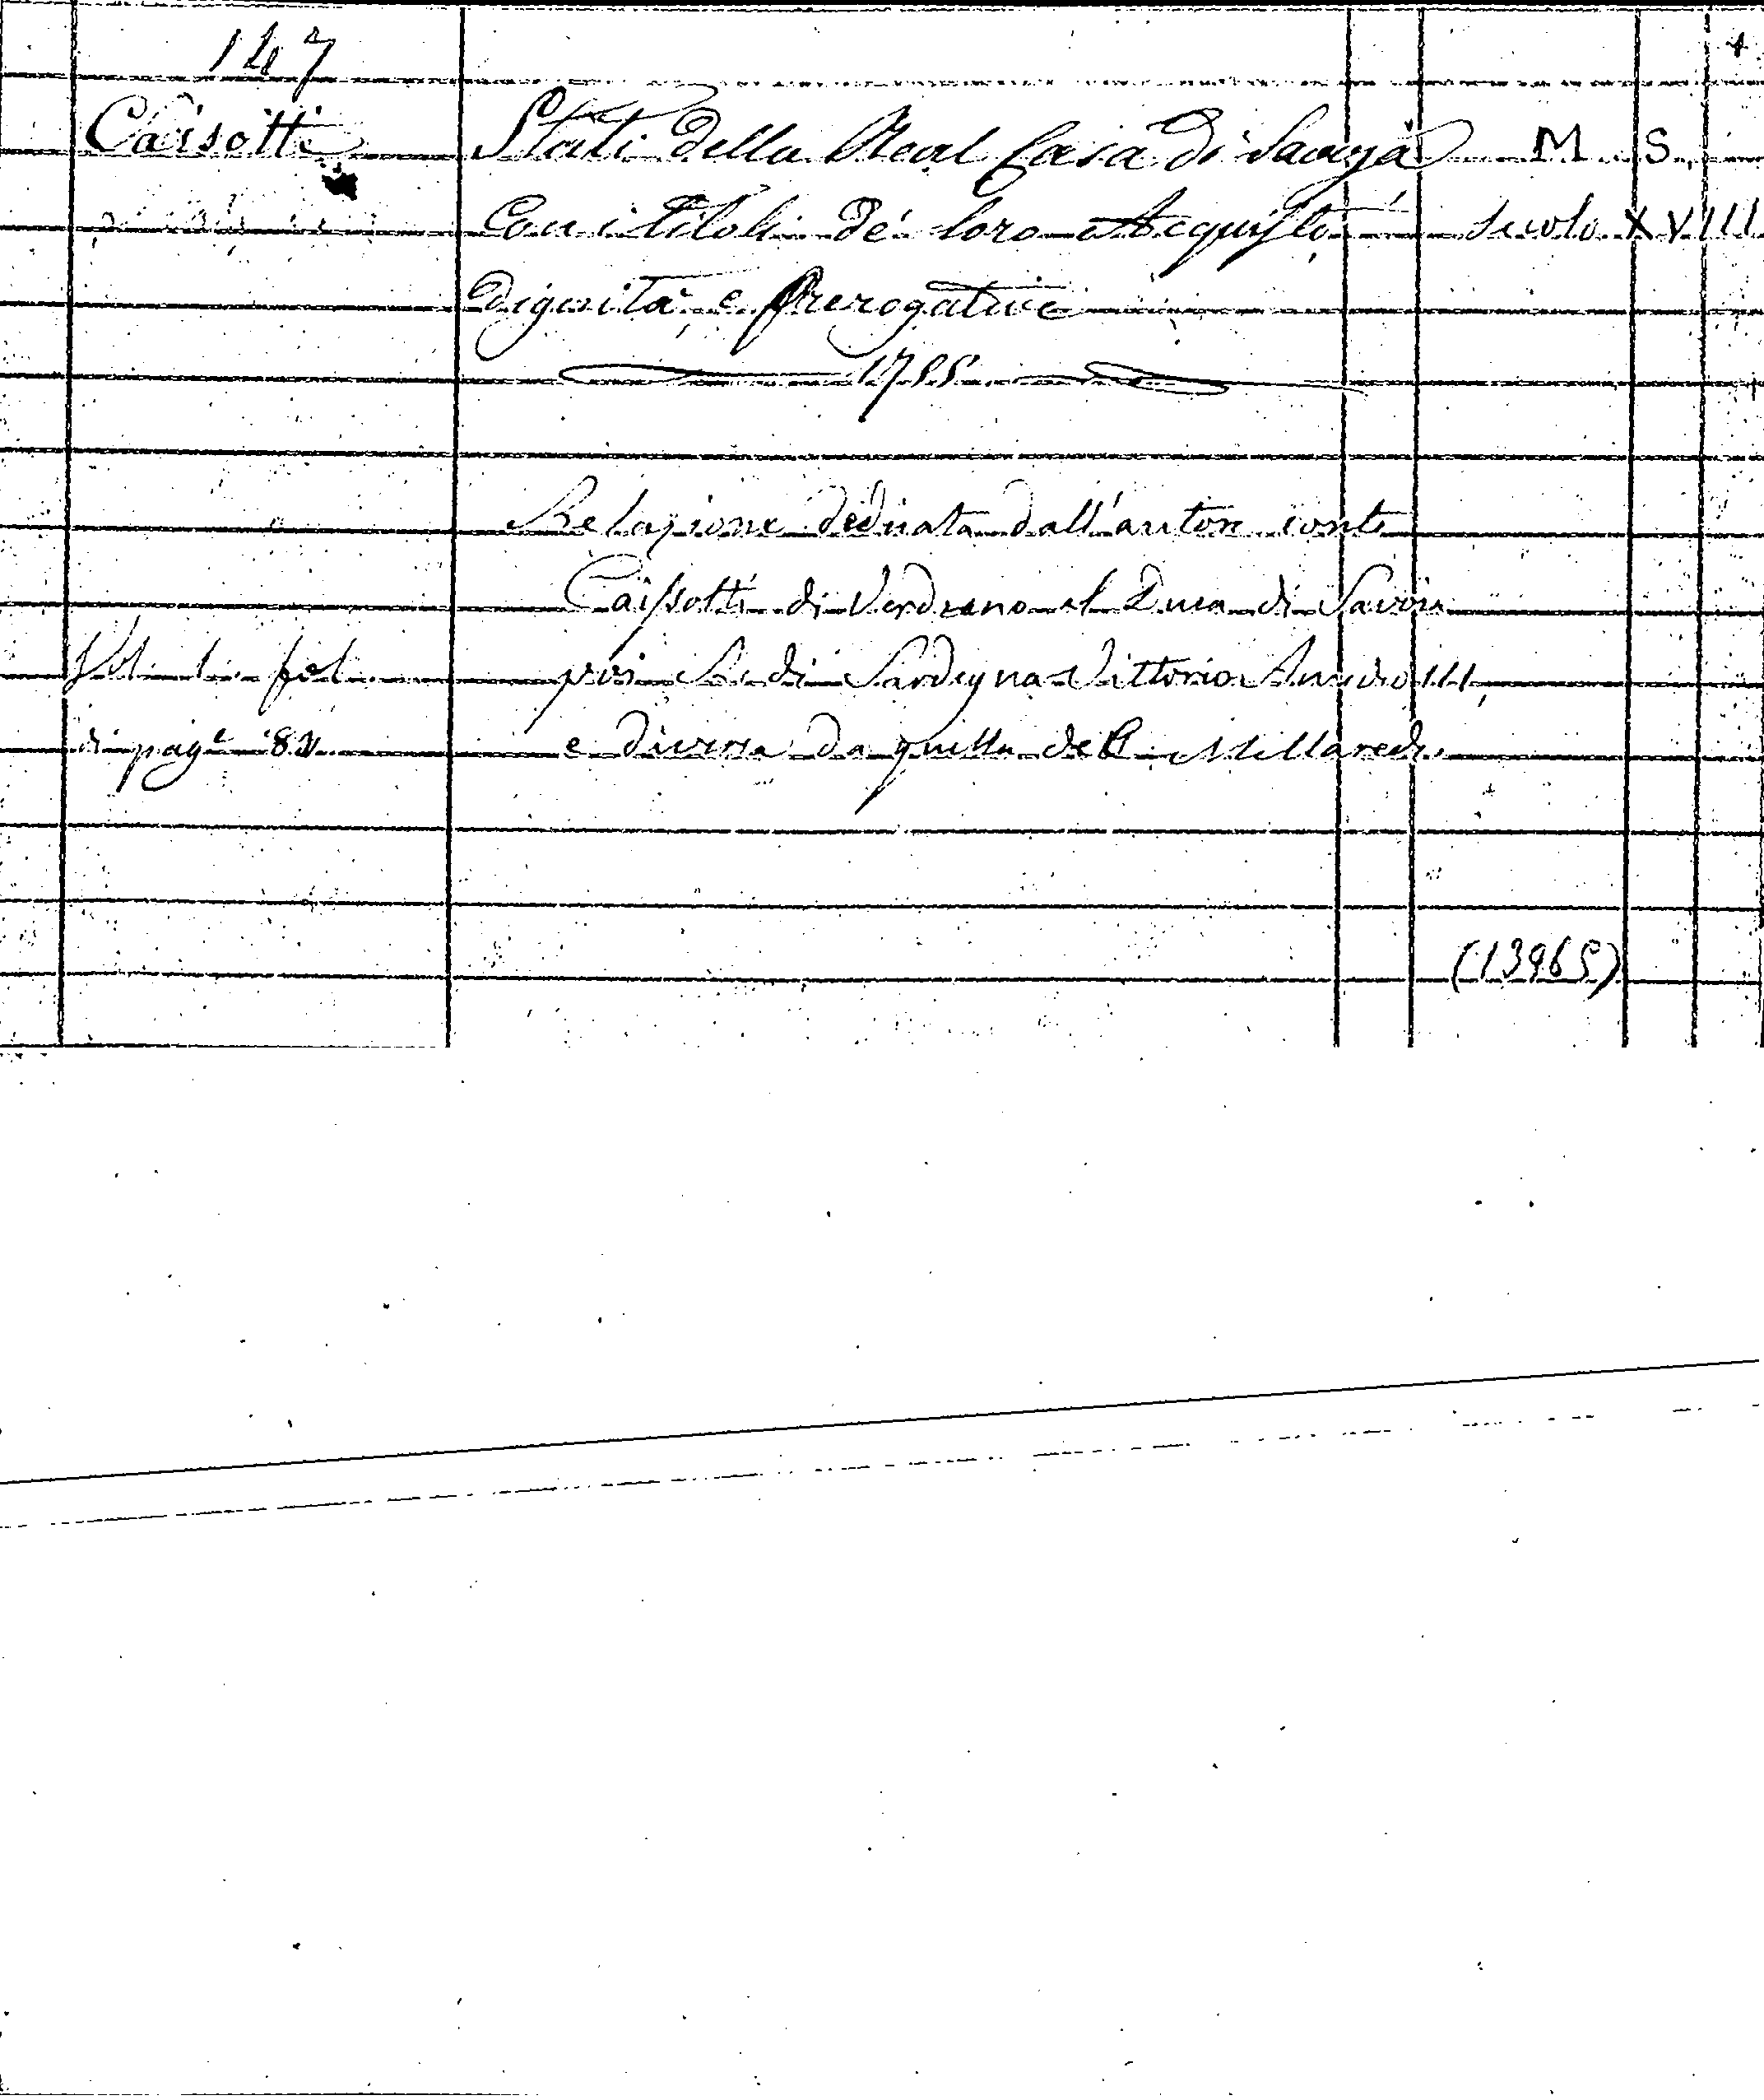 147
Caisotti Stati della Real Casa di Savoja M. S.
Con i titoli de' loro Acquisto Secolo XVIII
Dignità e Prerogative
1755
Relazione dedicata dall'autore conte
Caissotti di Verdezano al Duca di Savoia
Vol. 1. fol. poi Re di Sardegna Vittorio Amedeo III,
di pag.e 82 e diversa da quella del Mellarede.
(13965)